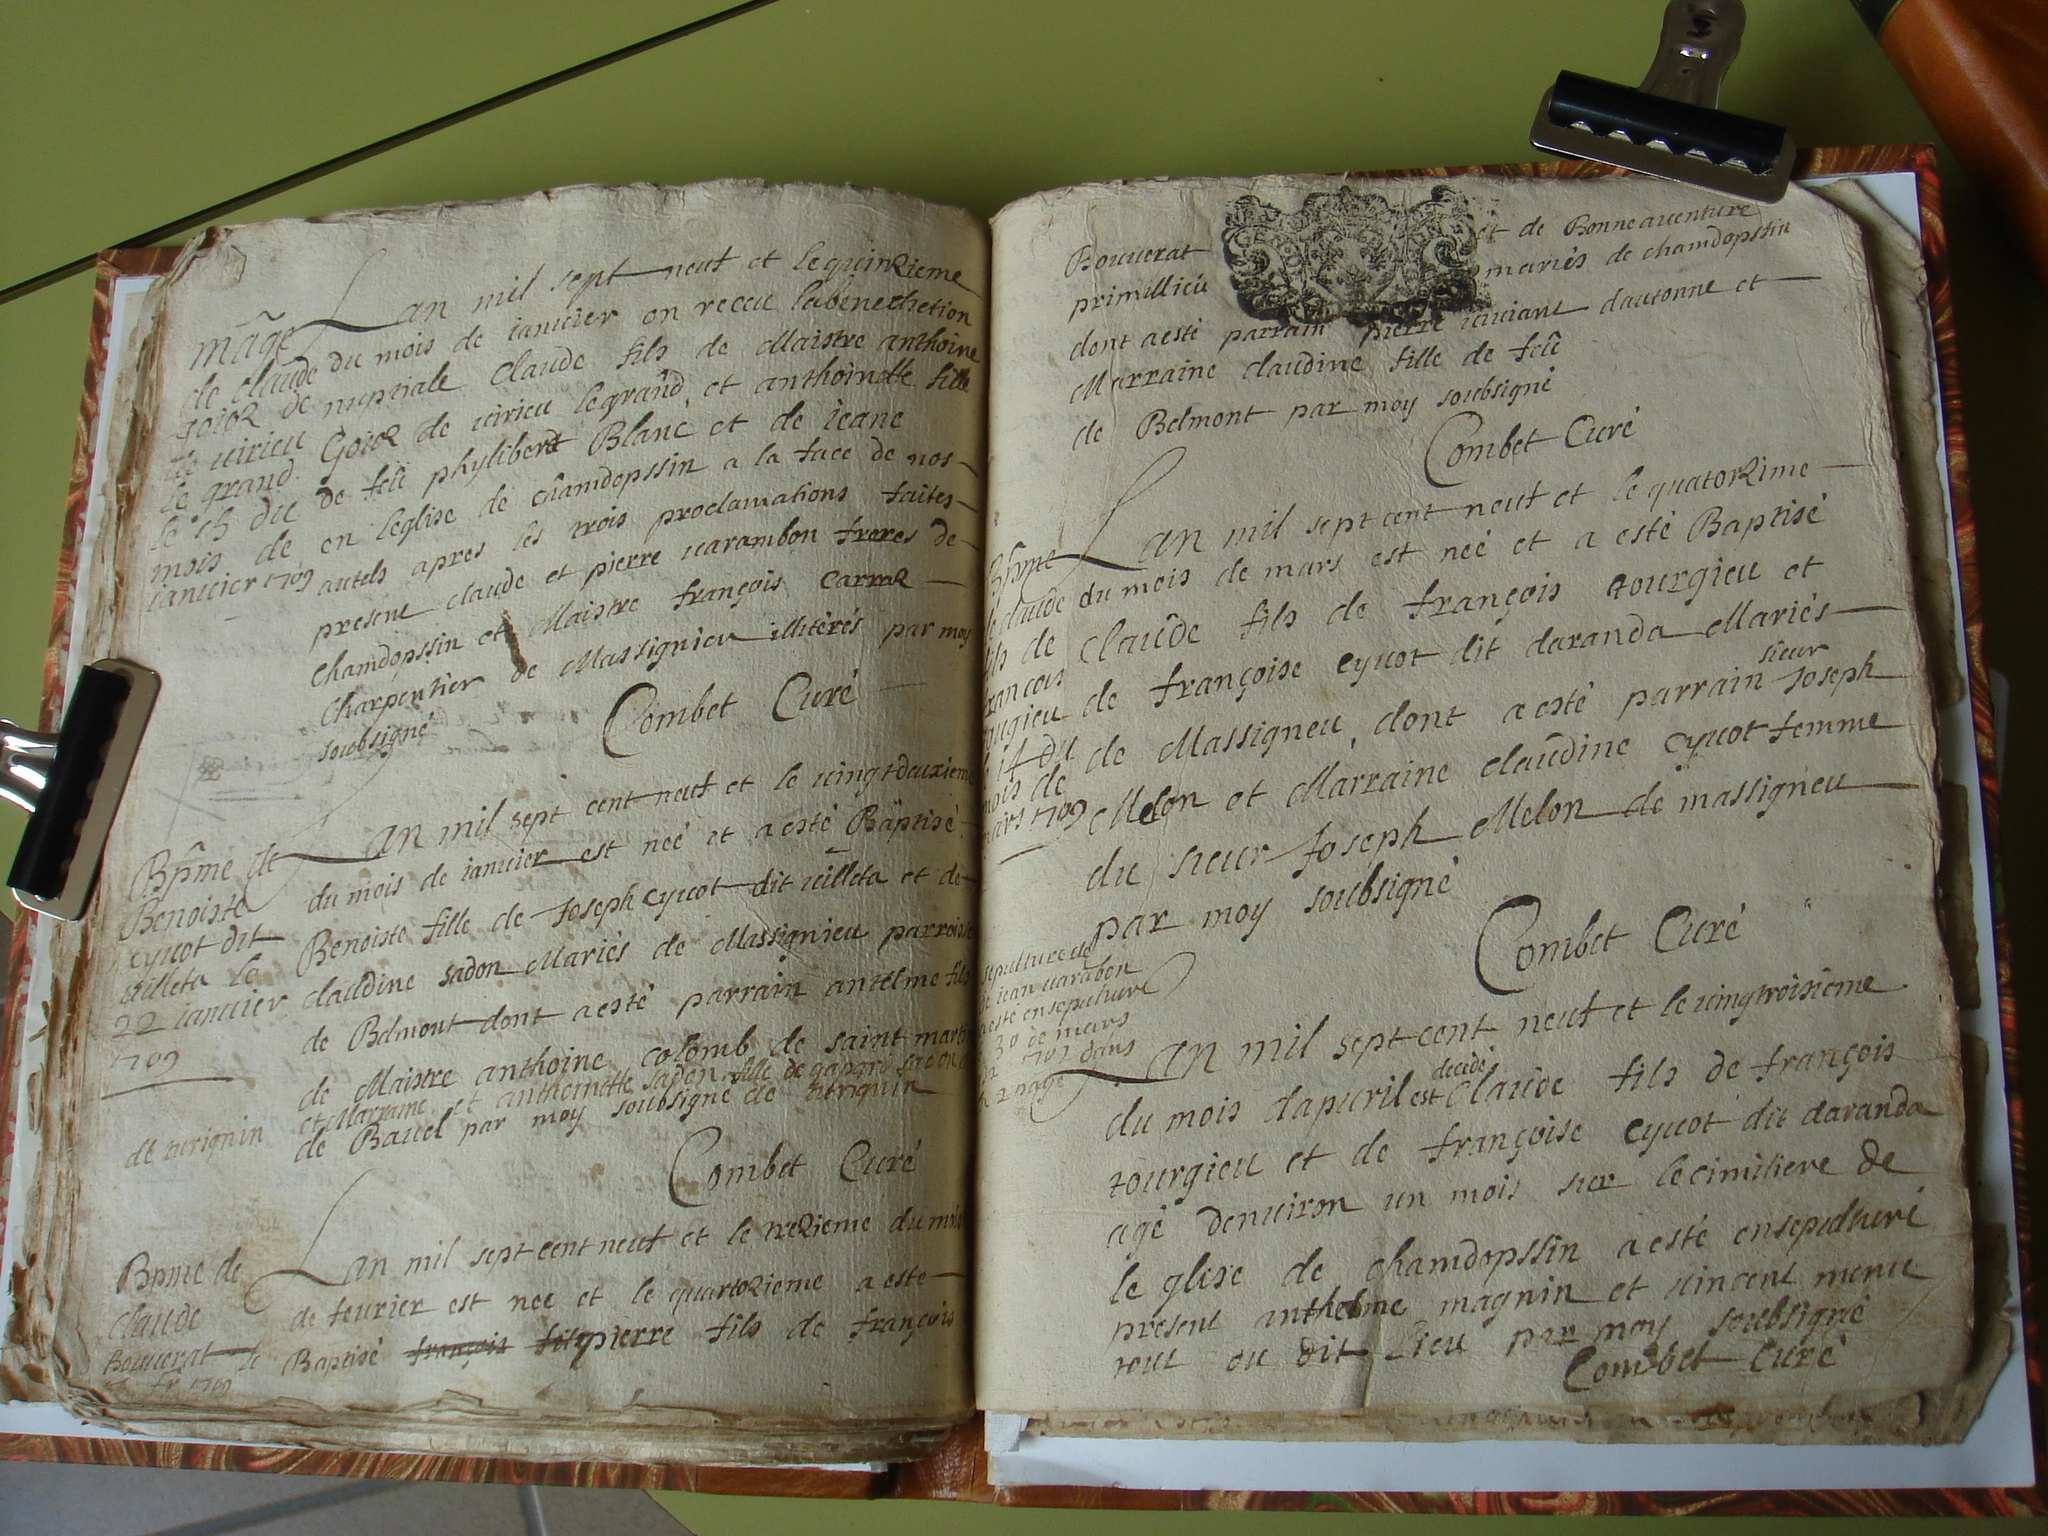 Lan mil sept neuf et le quinzieme
mãge
de claude du mois de ianuier on receu la benediction
goioz de nuptiale Claude fils de Maistre anthoine
uirieu Goioz de uirieu le grand, et anthoinette fille
le grand
le 15 du de feû phylibert Blanc et de ieane
mois de en leglise de chamdopssin a la face de nos
ianuier 1709 autels apres les trois proclamations faites
present claude et pierre uarambon freres de
chamdopssin et Maistre françois Carraz
Charpentier de Massignieu illiterés par moy
soubsigné
Combet Curé
Lan mil sept cent neuf et le uingtdeuxieme
Bpme de
du mois de ianuier est neé et a esté Baptisé
Benoiste
eyuot dit Benoiste fille de Joseph eyuot dit uilleta et de
uilleta le
claudine sadon Mariés de Massignieu parroisse
22 ianuier
de Belmont dont a esté parrain antelme fils
1709
de Maistre anthoine colomb de saint martin
et Marraine et anthoinette sadon fille de
de uirignin
de Bauel par moy soubsigné de uirignin
Combet Curé
Lan mil sept cent neuf et le trezieme du mois
Bpme de
claude
de feurier est neé et le quartozieme a esté
Bouuerat le Baptisé françois fils pierre fils de françois
1709
Bouuerat et de Bonneauenture
primillieu mariés de chamdopssin
dont a esté parrain pierre uiuiant dautonne et
Marraine claudine fille de feû
de Belmont par moy soubsigné
Combet Curé
Lan mil sept cent neuf et le quatorzime
de claude du mois de mars est neé et a esté Baptisé
fils de Claude fils de françois tourgieu et
francois
de françoise eyuot dit daranda Mariés
sieur
14 du
de Massigneu, dont a esté parrain Joseph
mois de
mars 1709 Melon et Marraine claudine eyuot femme
du sieur Joseph Melon de massigneu
par moy soubsigné
Combet Curé
sepulture de
jean uaraben
a esté ensepulturé
30 de mars
dans
page
Lan mil sept cent neuf et le uingtroisieme
decedé
du mois dapuril est Claude fils de françois
tourgieu et de françoise eyuot dit daranda
agé denuiron un mois sur le cimitiere de
le glise de chamdopssin a esté ensepulturé
present anthelme magnin et uincent menu
tout du dit Lieu par moy soubsigné
Combet Curé